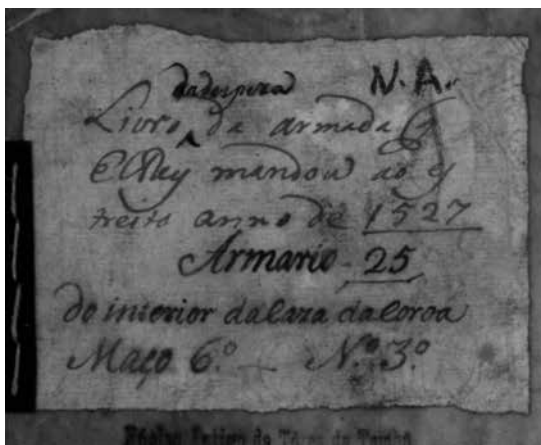 dadespeza N. A.
Livro da armada q
ElRey mandou ao es
treito anno de 1527
Armario - 25
do interior da Caza da Coroa
Maço 6.º - N.º 3.º